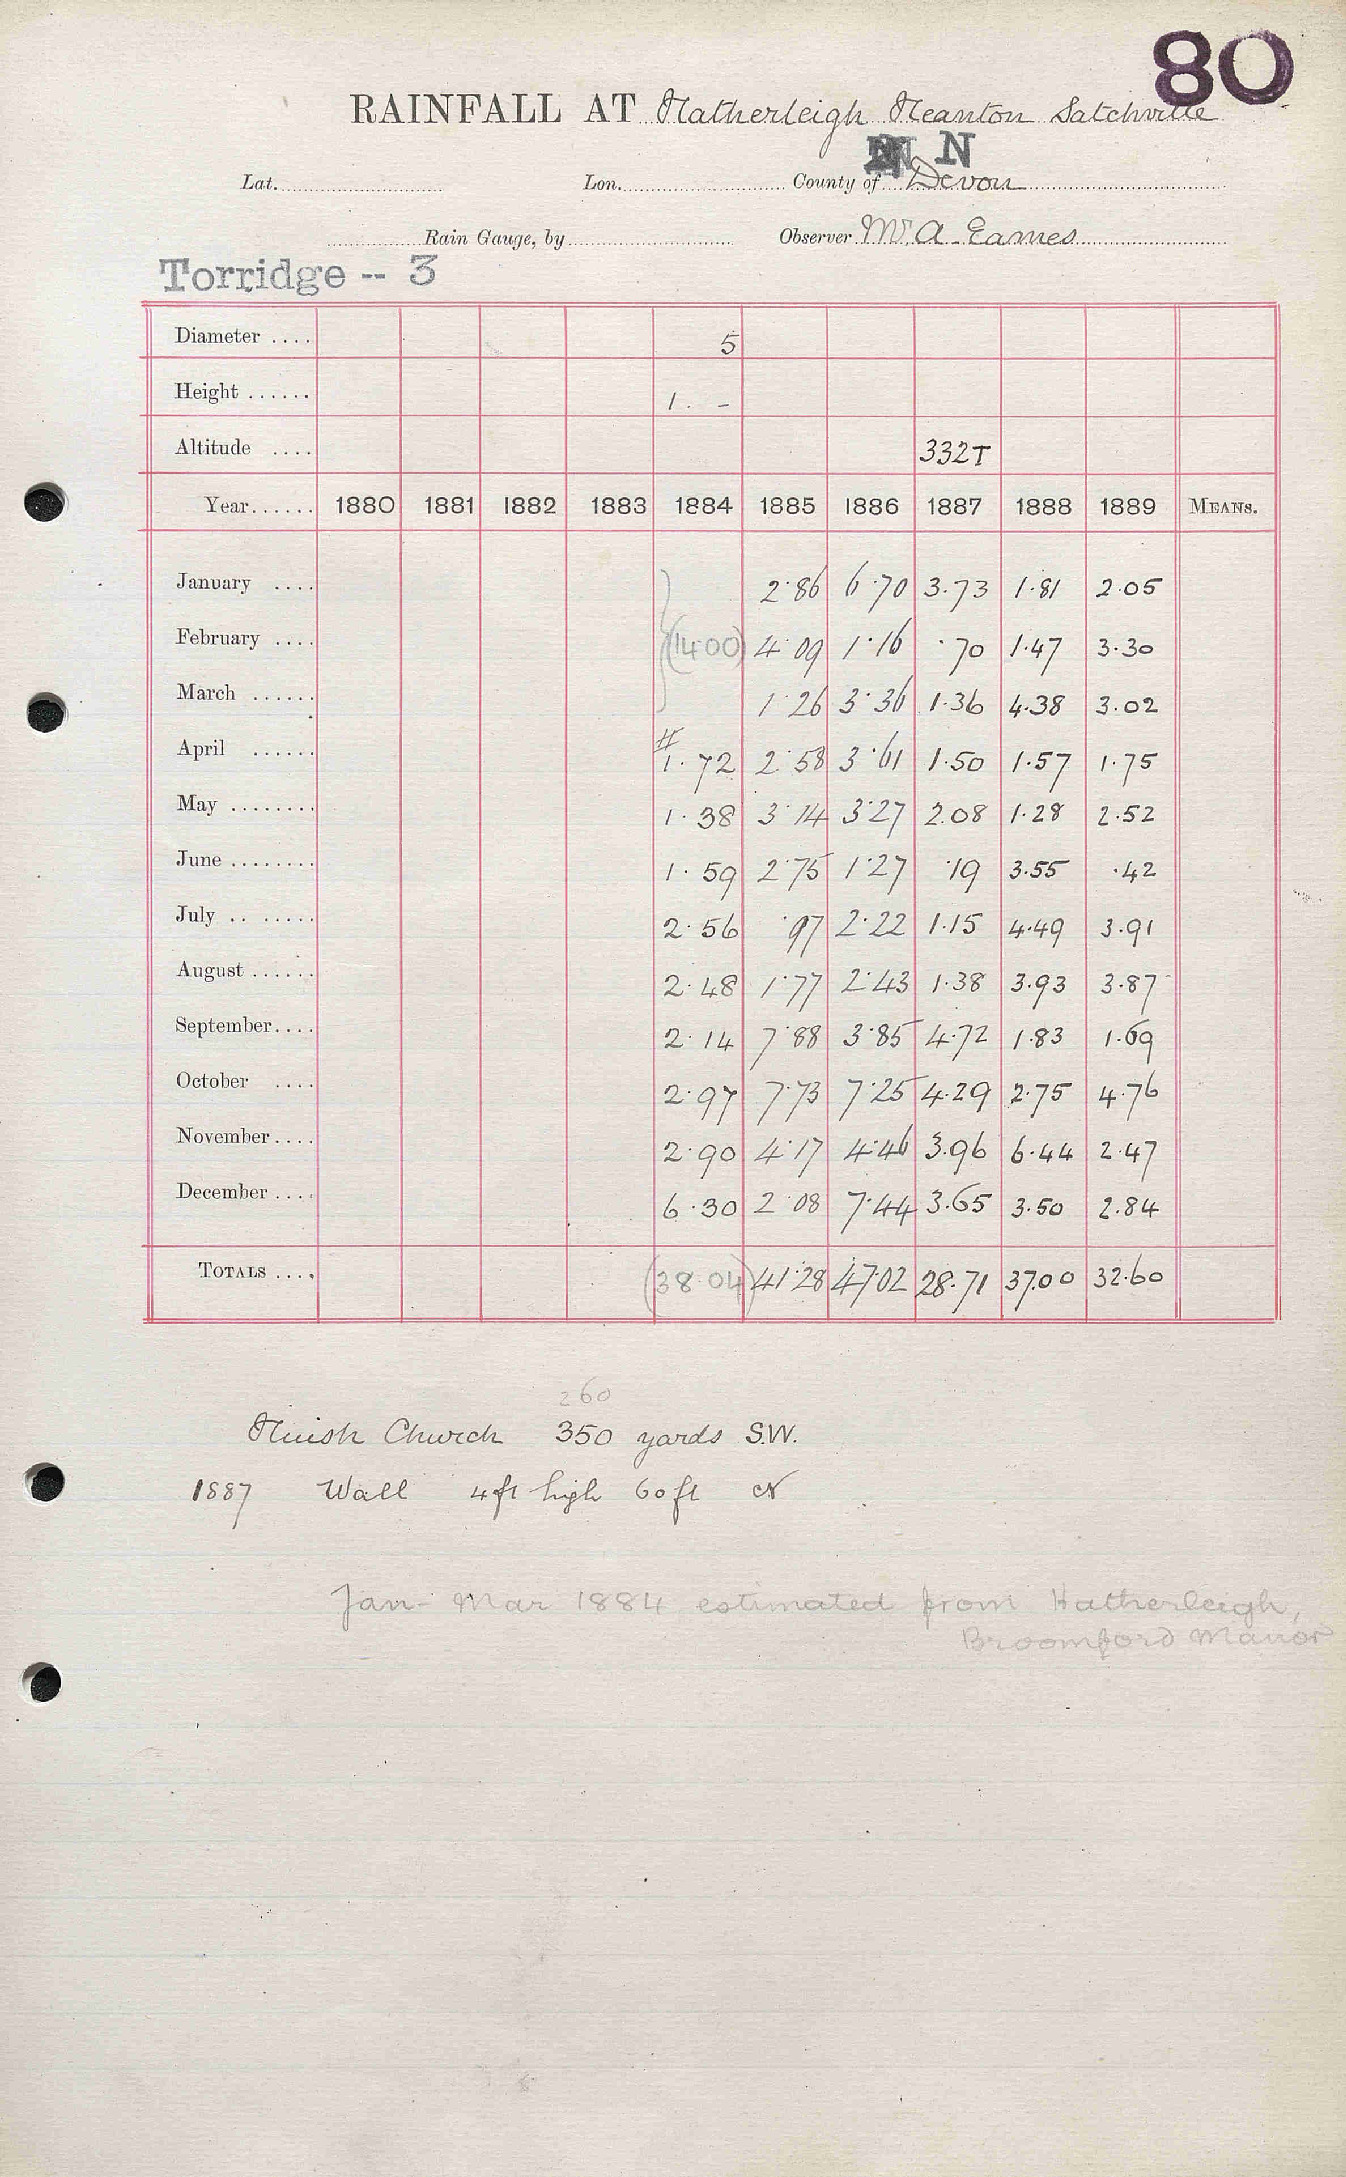 80
RAINFALL AT Hatherleigh Heanton Satchville
N
Lat. Lon. County of Devon
Rain Gauge, by Observer Mr. A. Eames
Torridge -- 3
Diameter .... 5
Height ...... 1. -
Altitude .... 332T
Year...... 1880 1881 1882 1883 1884 1885 1886 1887 1888 1889 MEANS.
January .... 2.86 6.70 3.73 1.81 2.05
February .... (14.00) 4.09 1.16 .70 1.47 3.30
March ...... 1.26 3.36 1.36 4.38 3.02
April ...... # 1.72 2.58 3.61 1.50 1.57 1.75
May ........ 1.38 3.14 3.27 2.08 1.28 2.52
June ........ 1.59 2.75 1.27 .19 3.55 .42
July .. ..... 2.56 .97 2.22 1.15 4.49 3.91
August ...... 2.48 1.77 2.43 1.38 3.93 3.87
September.... 2.14 7.88 3.85 4.72 1.83 1.69
October .... 2.97 7.73 7.25 4.29 2.75 4.76
November .... 2.90 4.17 4.46 3.96 6.44 2.47
December .... 6.30 2.08 7.44 3.65 3.50 2.84
TOTALS .... (38.04) 41.28 47.02 28.71 37.00 32.60
260
Huish Church 350 yards S.W.
1887 Wall 4ft high 60ft N
Jan- Mar 1884 estimated from Hatherleigh,
Broomford Manor